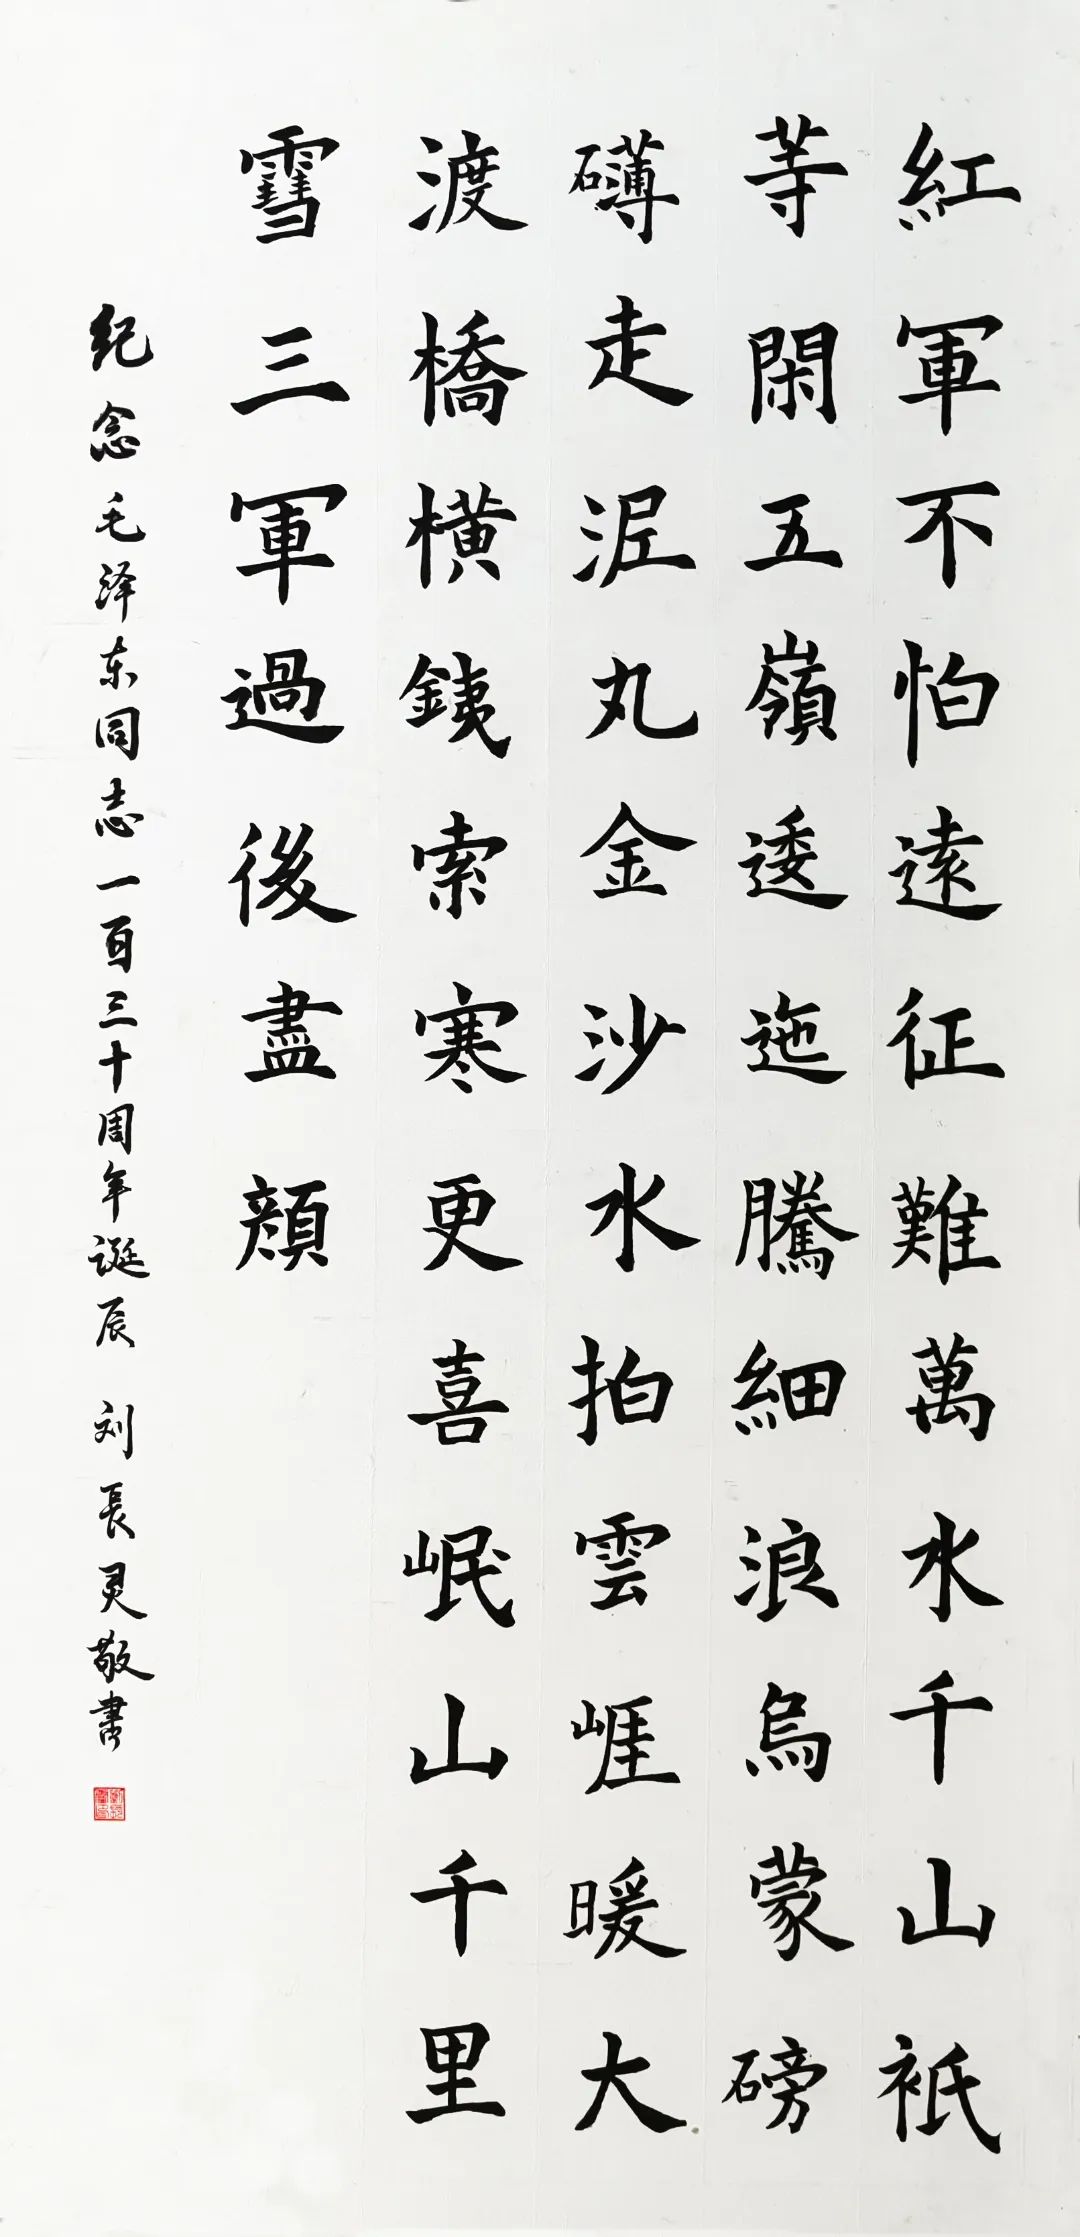 紅軍不怕遠征難萬水千山祇
等閑五嶺逶迤騰細浪烏蒙磅
礴走泥丸金沙水拍雲崖暖大
渡橋横銕索寒更喜岷山千里
雪三軍過後盡顔
纪念毛泽东同志一百三十周年诞辰 刘長灵敬書